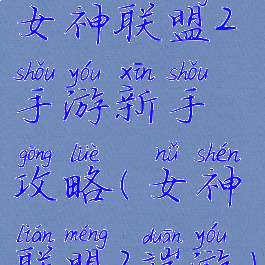 女神联盟2
shǒu yóu xīn shǒu
手游新手
gōng lüè nǚ shén
攻略(女神
lián méng duān yóu
联盟2端游)